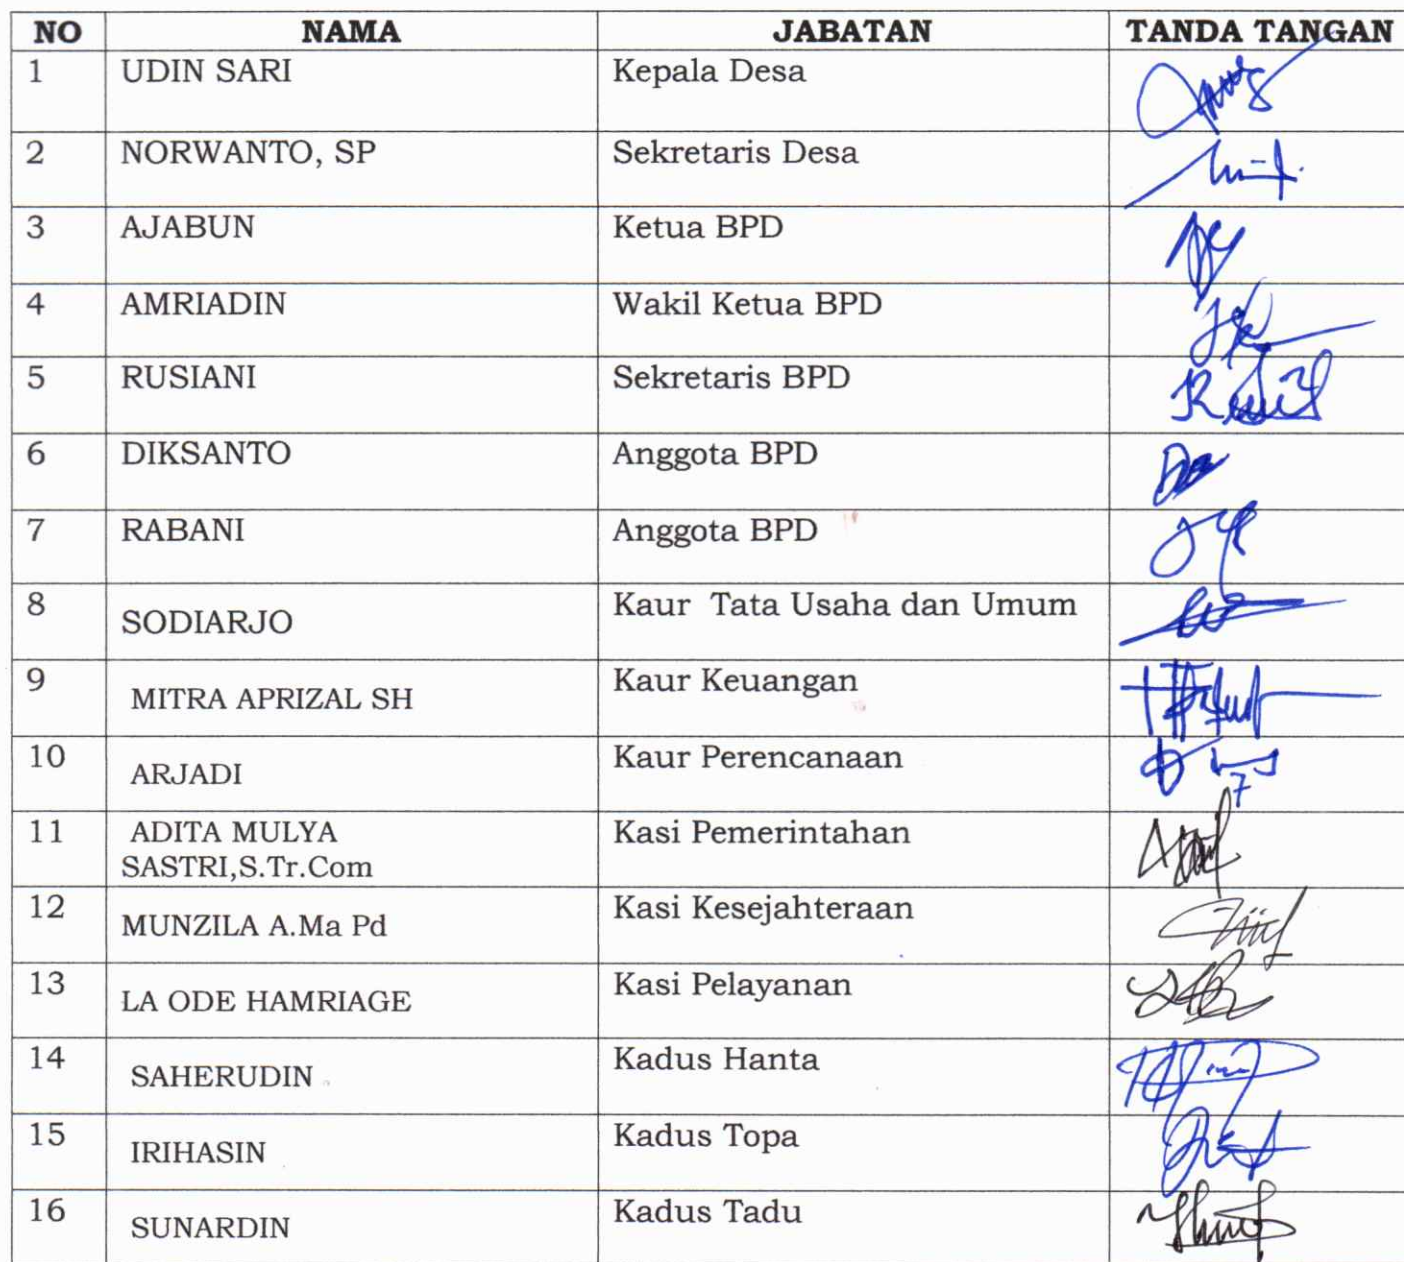 NO NAMA JABATAN TANDA TANGAN
1 UDIN SARI Kepala Desa
2 NORWANTO, SP Sekretaris Desa
3 AJABUN Ketua BPD
4 AMRIADIN Wakil Ketua BPD
5 RUSIANI Sekretaris BPD
6 DIKSANTO Anggota BPD
7 RABANI Anggota BPD
8 SODIARJO Kaur Tata Usaha dan Umum
9 MITRA APRIZAL SH Kaur Keuangan
10 ARJADI Kaur Perencanaan
11 ADITA MULYA Kasi Pemerintahan
SASTRI,S.Tr.Com
12 MUNZILA A.Ma Pd Kasi Kesejahteraan
13 LA ODE HAMRIAGE Kasi Pelayanan
14 SAHERUDIN Kadus Hanta
15 IRIHASIN Kadus Topa
16 SUNARDIN Kadus Tadu